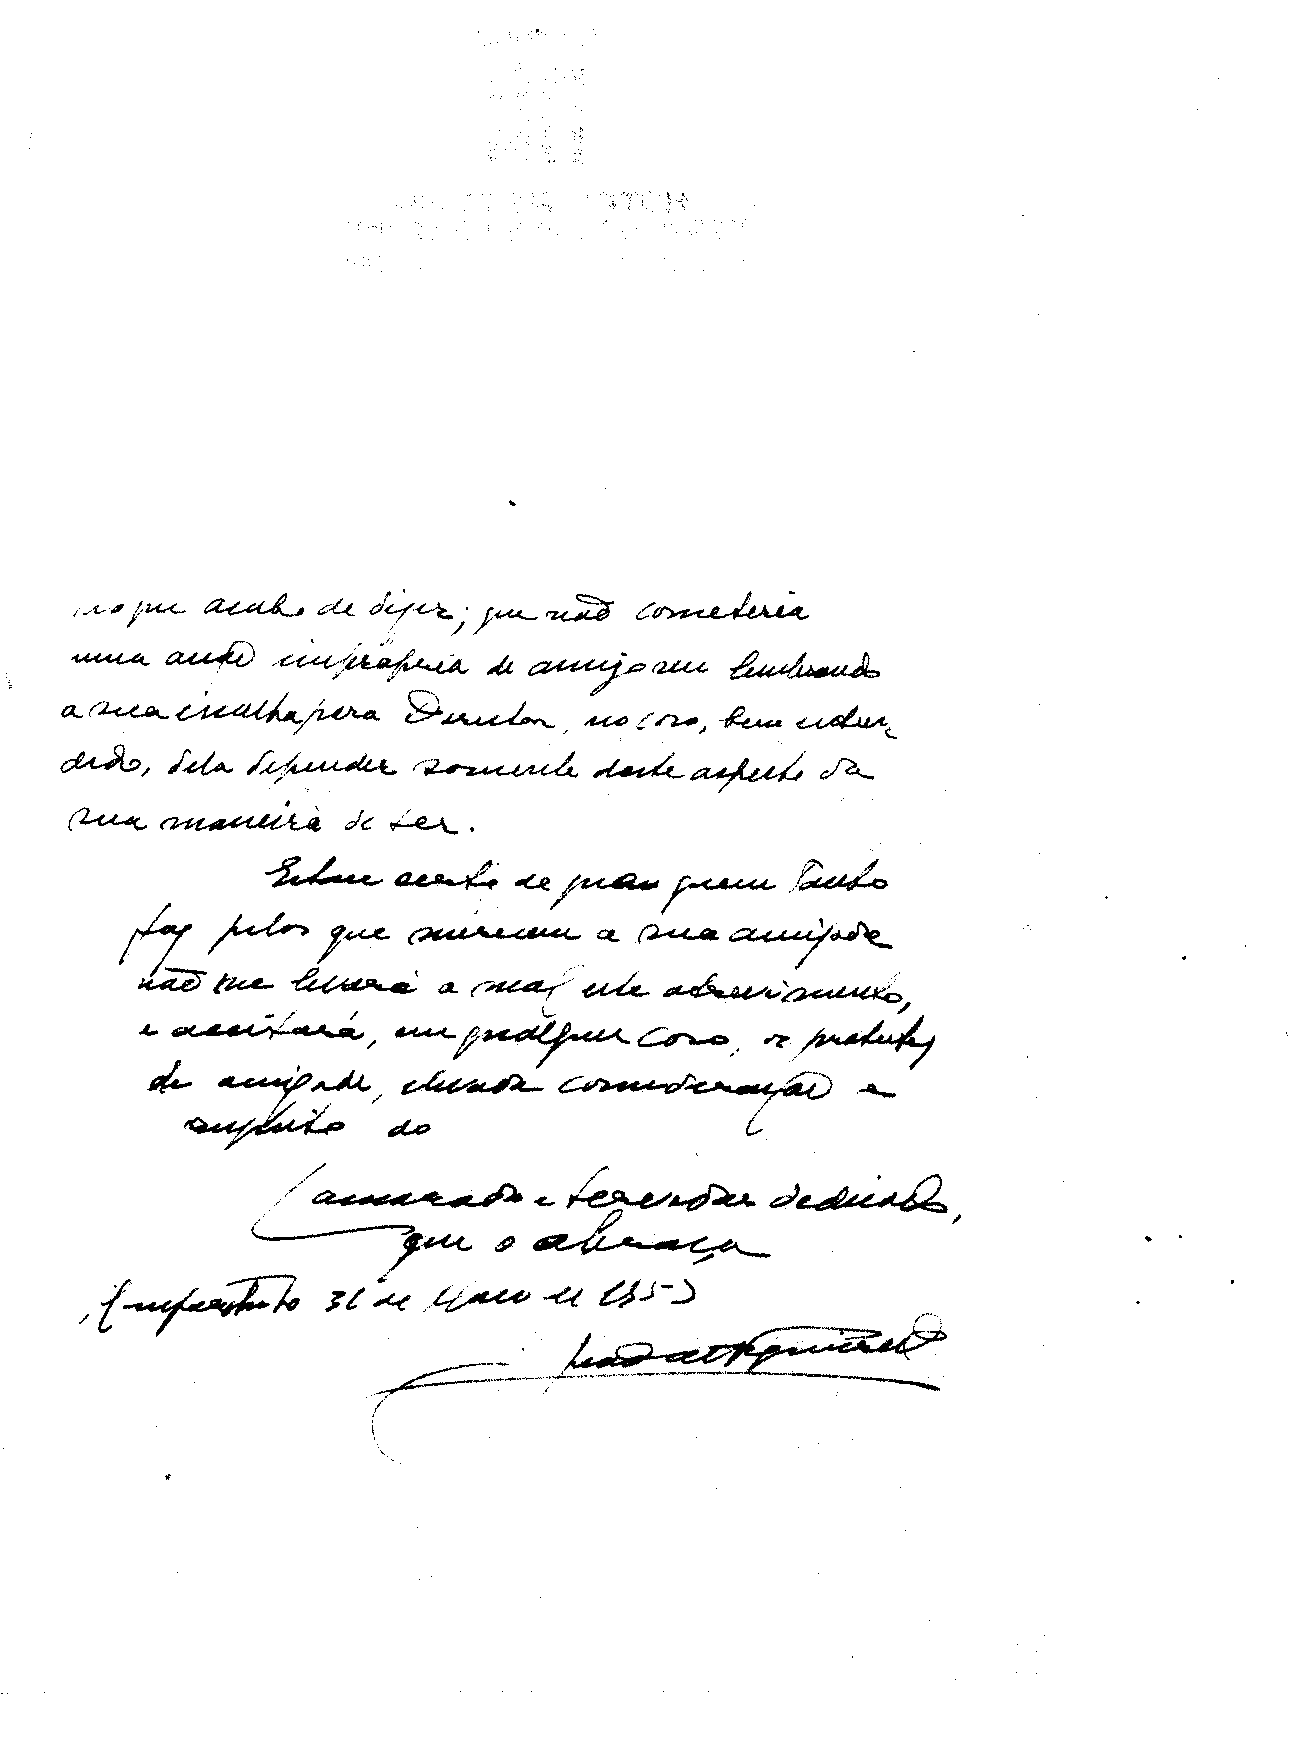 no que acabo de dizer; que não cometeria
uma acção imprópria de amigo seu lembrando
a sua escolha para Director, no caso, bem enten-
dido, dela depender somente deste aspecto da
sua maneira de ser.
Estou certo de que quem tanto
faz pelos que merecem a sua amizade
não me levará a mal este atrevimento,
e aceitará, em qualquer caso, os protestos
de amizade, elevada consideração e
respeito do
Camarada e servidor dedicado,
que o abraça
31 de Maio de 195